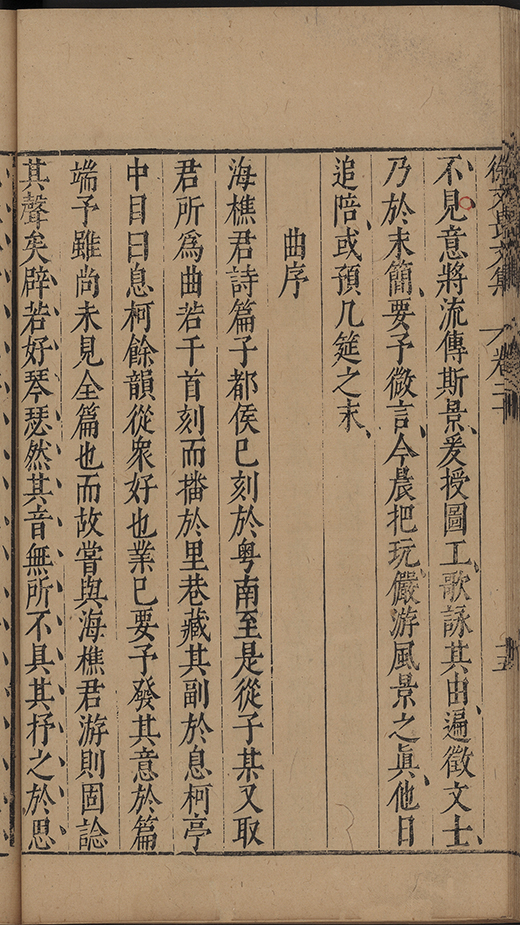 徐文長文集 卷二十 十五
不見意將流傳斯景爰授圖工、歌詠其由、遍徵文士、
乃於末簡、要予微言、今晨把玩儼游風景之眞、他日
追陪、或預几筵之末、
曲序
海樵君詩篇子都侯已刻於粤南至是從子某又取
君所爲曲若干首刻而播於里巷藏其副於息柯亭
中目曰息柯餘韻從衆好也業已要予發其意於篇
端予雖尚未見全篇也而故嘗與海樵君游則固諗
其聲矣辟若好琴瑟然其音無所不具其抒之於思